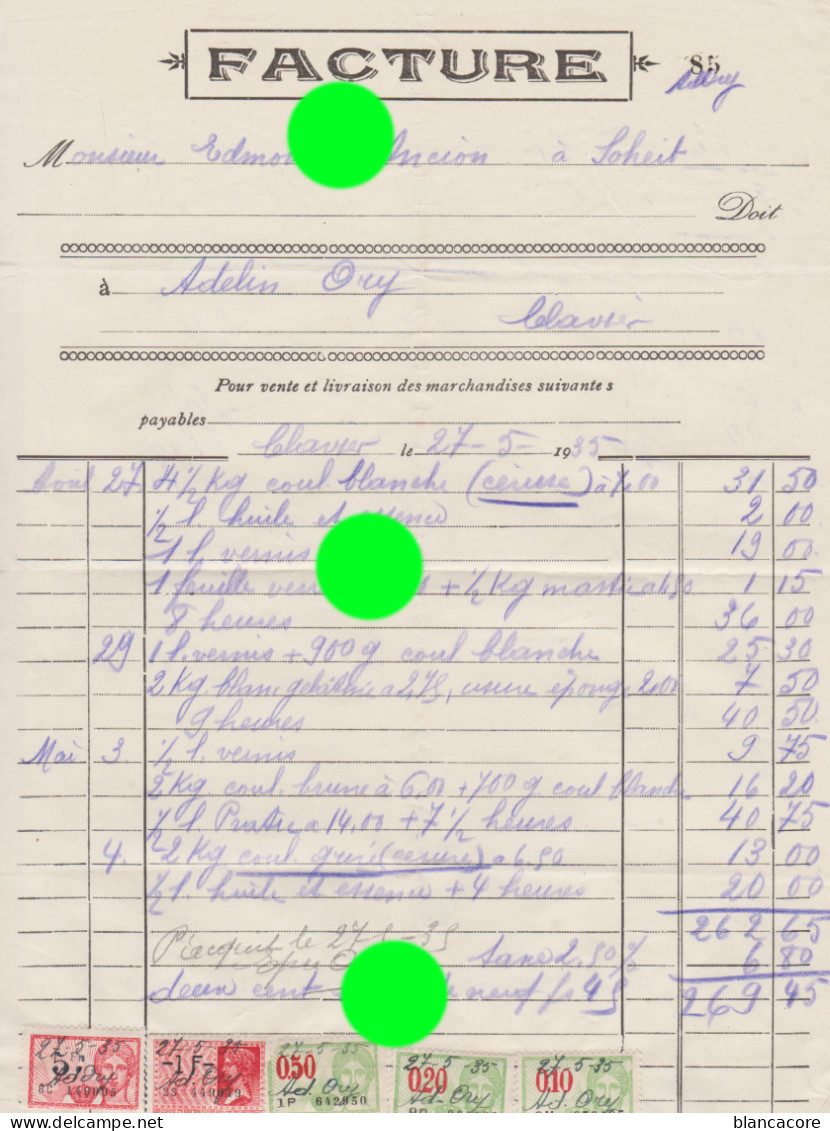 FACTURE
85
Monsieur Edmo Ancion à Soheit
Doit
à Adelin Ory
Clavier
Pour vente et livraison des marchandises suivantes
payables
Clavier le 27-5-1935
Avril 27 4 1/2 Kg coul blanche (céruse) à 7.00 31 50
1/2 l. huile et essence 2 00
1 l. vernis 19 00
1 feuille + 1/2 Kg mastic a 1.50 1 15
8 heures 36 00
29 1 l. vernis + 900 g coul blanche 25 30
2 Kg. blanc a 2.75, éponge 2.00 7 50
9 heures 40 50
Mai 3. 1/2 l. vernis 9 75
Kg coul. brune à 6.00 + 700 g coul blanche 16 20
1/2 l a 14.00 + 7 1/2 heures 40 75
4. 2 Kg coul. grise (céruse) a 6.50 13 00
1/2 l. huile et essence + 4 heures 20 00
262 65
le 27-5-35
taxe 2.50% 6 80
deux cent neuf fs 45 269 45
27-5-35 27-5-35 27-5-35 27-5-35 27-5-35
5 Fr 1 Fr 0,50 0,20 0,10
Ad. Ory Ad. Ory Ad. Ory Ad. Ory Ad. Ory
1P 642950
blancacore
delcampe.net
blancacore